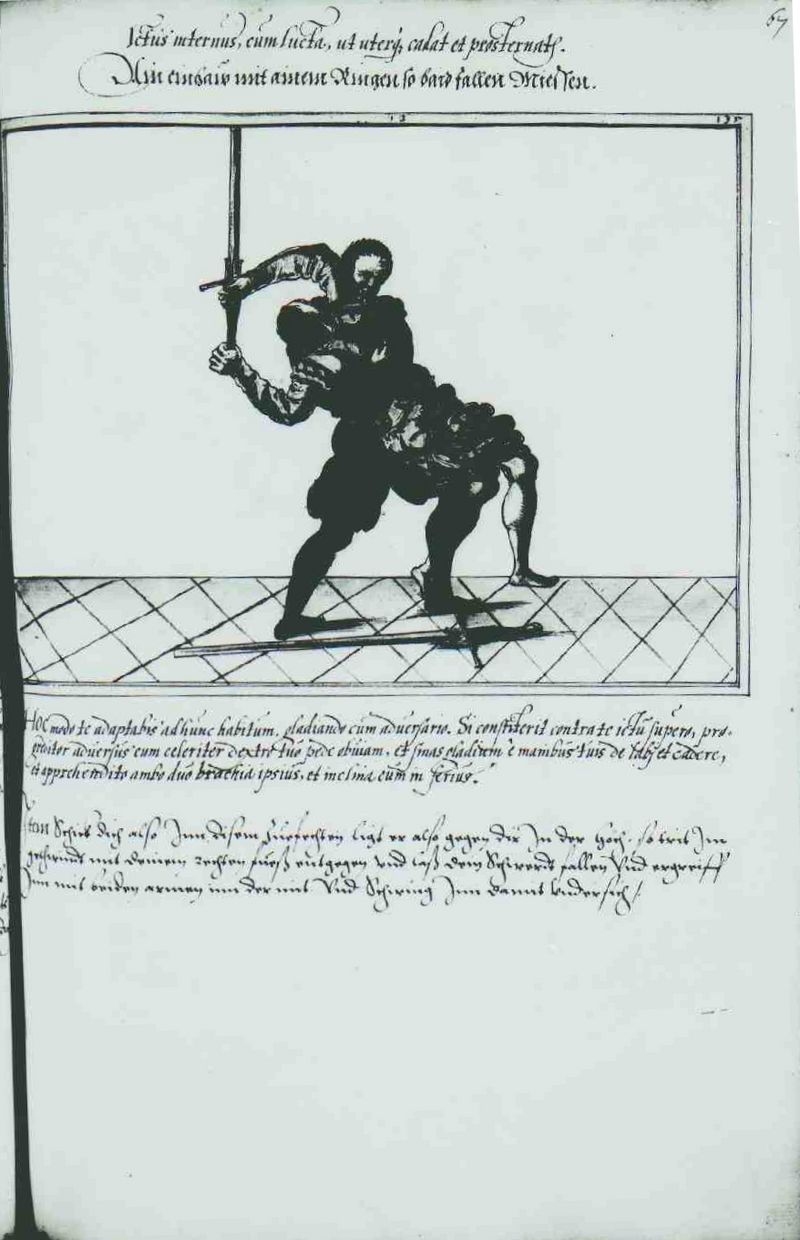 67
Ictus internus, cum lucta, ut uterq, cadat et prosternat.
Ain einhaw mit ainem Ringen so baid fallen Miessen.
Hoc modo te adaptabis ad hunc habitum, gladiando cum adversario. Si constiterit contra te ictu supero, pro-
greditor adversus eum celeriter dextro tuo pede obviam, et sinas gladium e manibus tuis de labi et cadere,
et apprehendito ambo duo brachia ipsius, et inclina eum in ferius.
Item Schick dich also Inn disem Zufechten ligt er also gegen dir In der höch, so trit Im
geschwindt mit deinem rechten fuess entgegen vnd lass dein Schwerdt fallen Vnd ergreiff
Inn mit beiden armen inn der mit Vnd Schwing Inn damit vndersich